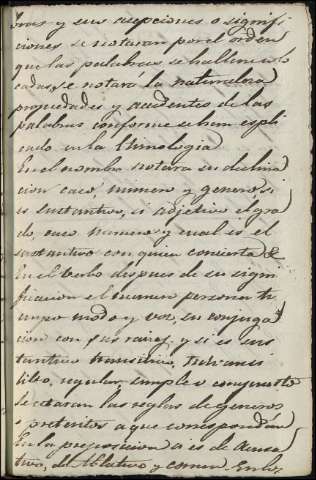 bras y sus acepciones o signifi
ciones se notaran por el orden
que las palabras se hallen colo
cadas, se notará la naturaleza
propiedades y accidentes de las
palabras conforme se han espli
cado en la Etimologia
En el nombre notara su declina
cion caso, numero y genero si
es sustantivo, si adjetivo el gra
do, caso numero y cual es el
sustantivo con quien concierta &
En el verbo despues de su signi
ficacion el numero persona ti
empo modo y voz, su conjuga
cion con sus raices, y si es sus
tantivo transitivo, intransi
sitivo, regular, simple o compuesto
se citaran las reglas de generos
o preteritos a que correspondan
En la preposicion si es de Acusa
tivo, de Ablativo y comun. En los